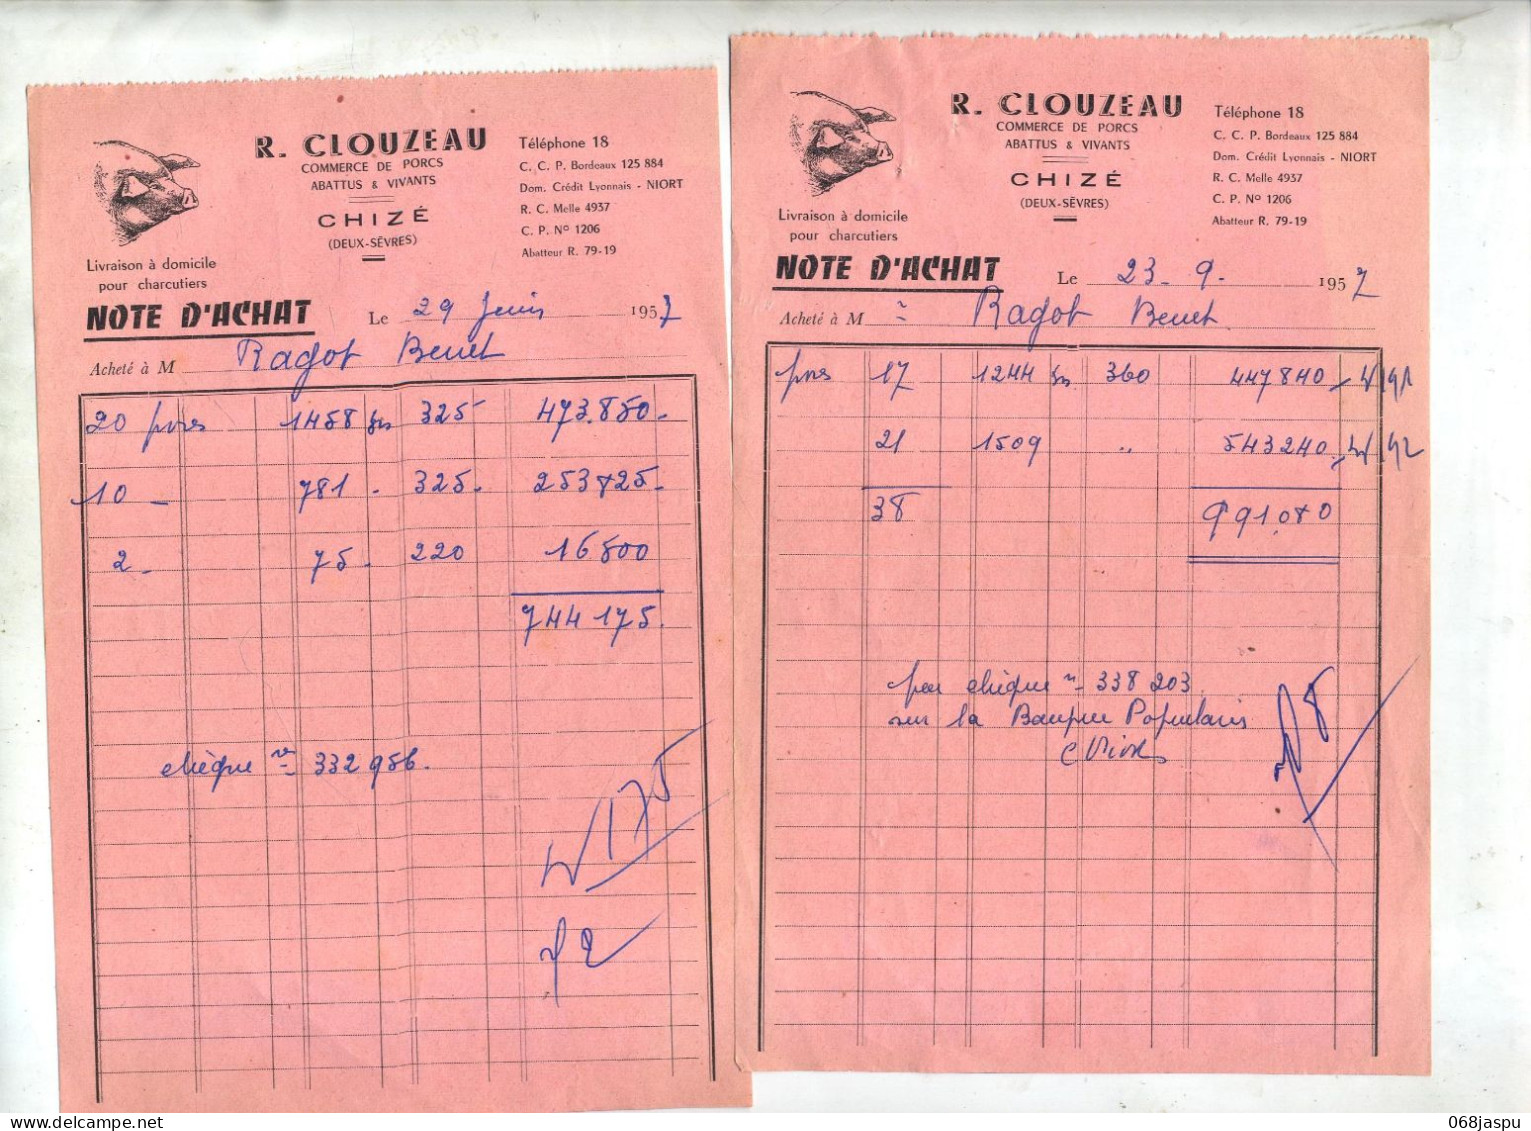 R. CLOUZEAU
COMMERCE DE PORCS
ABATTUS & VIVANTS
CHIZÉ
(DEUX-SÈVRES)
Téléphone 18
C. C. P. Bordeaux 125 884
Dom. Crédit Lyonnais - NIORT
R. C. Melle 4937
C. P. Nº 1206
Abatteur R. 79-19
Livraison à domicile
pour charcutiers
NOTE D'ACHAT
Le 29 Juin 1957
Acheté à M Ragot Benet
20 porcs 1458 kgs 325 473.850-
10 - 781 - 325- 253825-
2 - 75- 220 16500
744 175.
chèque nº 332 956.
175
R. CLOUZEAU
COMMERCE DE PORCS
ABATTUS & VIVANTS
CHIZÉ
(DEUX-SÈVRES)
Téléphone 18
C. C. P. Bordeaux 125 884
Dom. Crédit Lyonnais - NIORT
R. C. Melle 4937
C. P. Nº 1206
Abatteur R. 79-19
Livraison à domicile
pour charcutiers
NOTE D'ACHAT
Le 23-9-1957
Acheté à M r Ragot Benet
porcs 17 1244 kgs 360 447840-
21 1509 " 543240-
38 991.080
par chèque nº 338 203
sur la Banque Populaire
Niort
068jaspu
delcampe.net